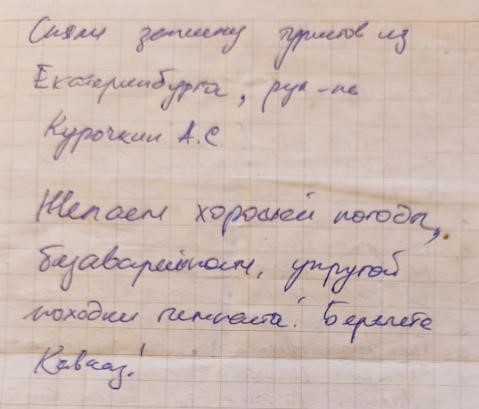 Сняли записку туристов из
Екатеринбурга, рук-ль
Курочкин А.С
Желаем хорошей погоды,
безаварийности, упругой
походки геміаста! Берегите
Кавказ!